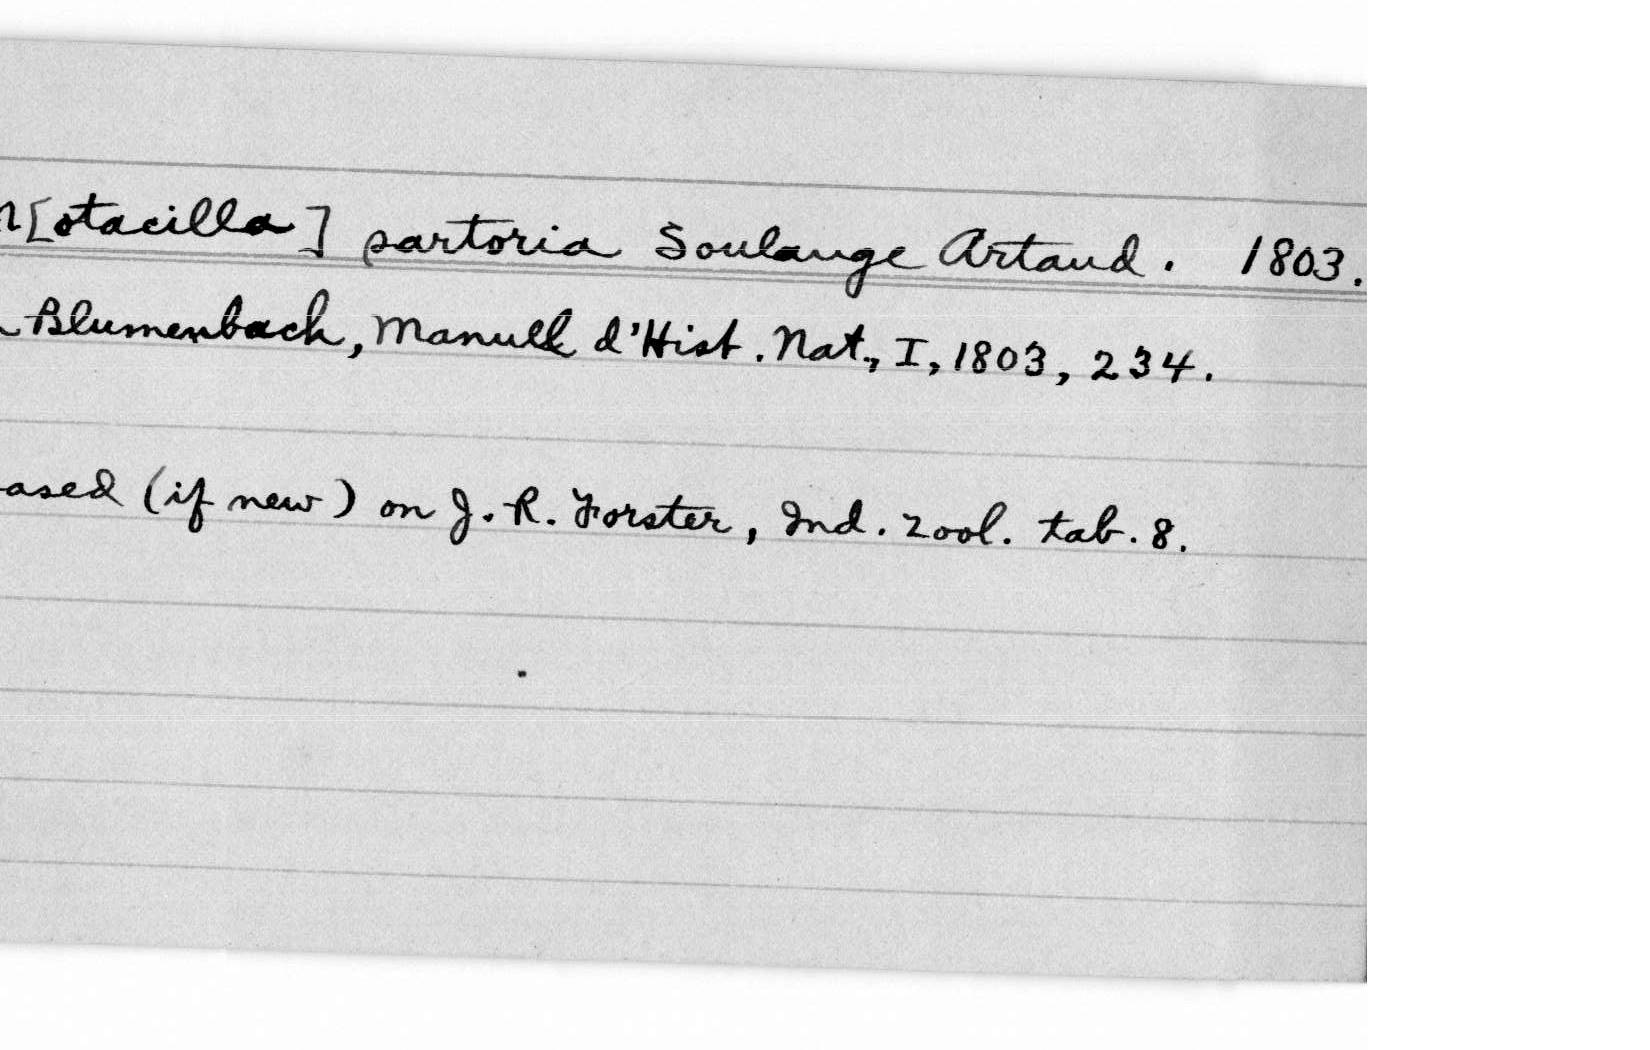 M[otacilla] sartoria Soulange Artaud. 1803.
Blumenbach, Manuel d'Hist. Nat., I, 1803, 234.
ased (if new) on J. R. Forster, Ind. Zool. tab. 8.